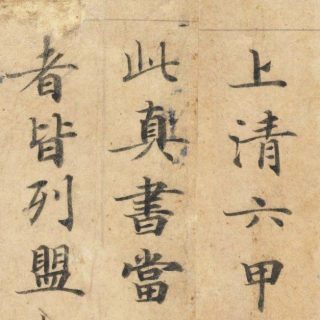 上清六甲
此真書當
者皆列盟